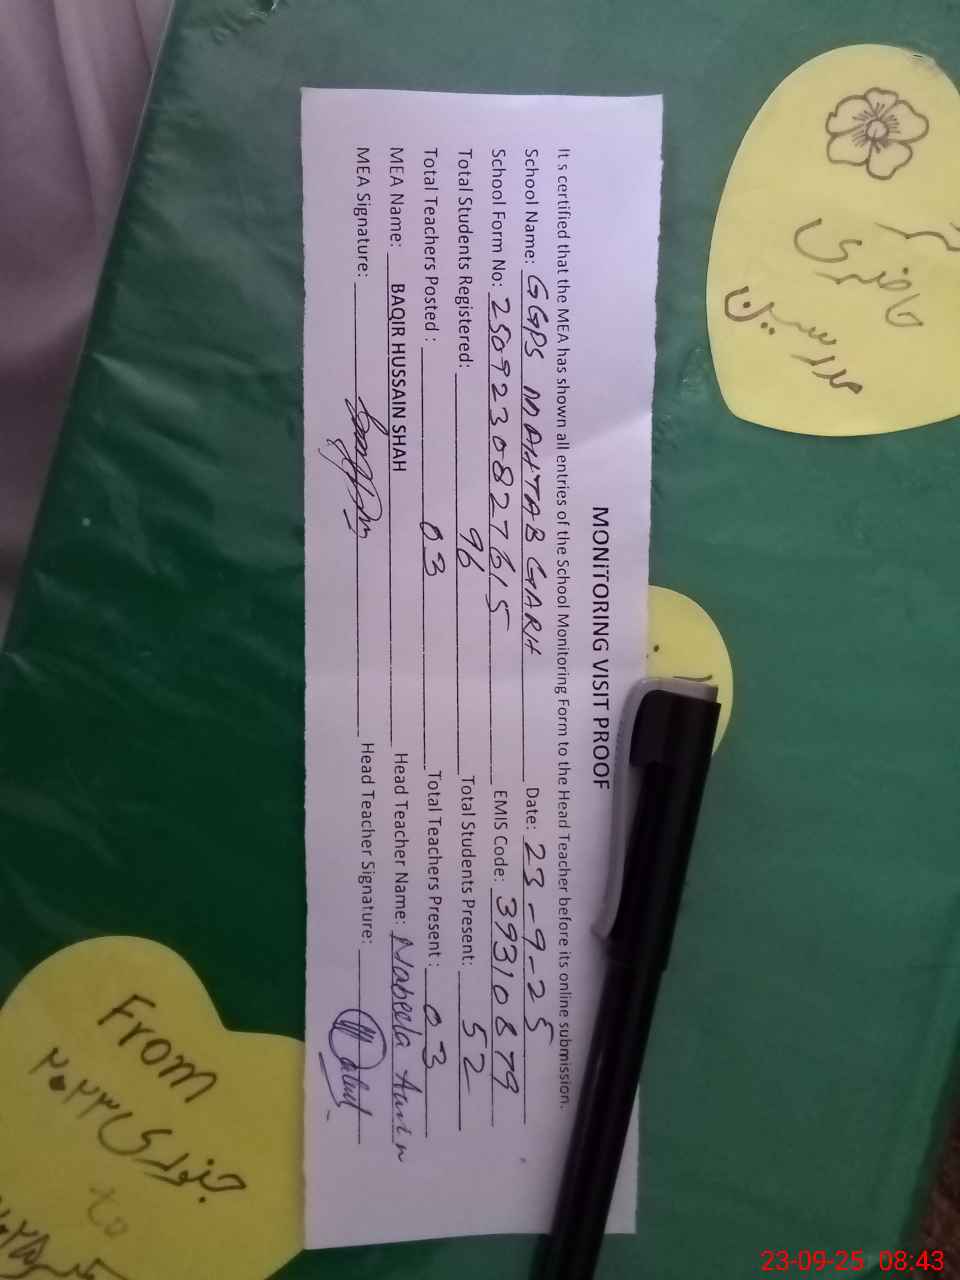 MONITORING VISIT PROOF
It s certified that the MEA has shown all entries of the School Monitoring Form to the Head Teacher before its online submission.
School Name: GGPS MAHTAB GARH Date: 23-9-25
School Form No: 2509230827615 EMIS Code: 39310879
Total Students Registered: 96 Total Students Present: 52
Total Teachers Posted : 03 Total Teachers Present : 03
MEA Name: BAQIR HUSSAIN SHAH Head Teacher Name: Nabeela Amin
MEA Signature: Head Teacher Signature:
حاضری
مدرسین
From
جنوری ۲۰۲۳
to
23-09-25 08:43